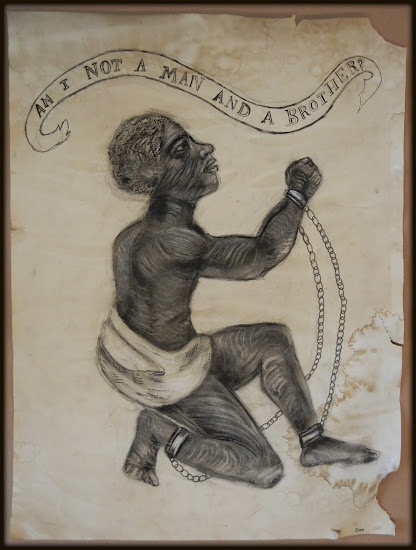 AM I NOT A MAN AND A BROTHER?